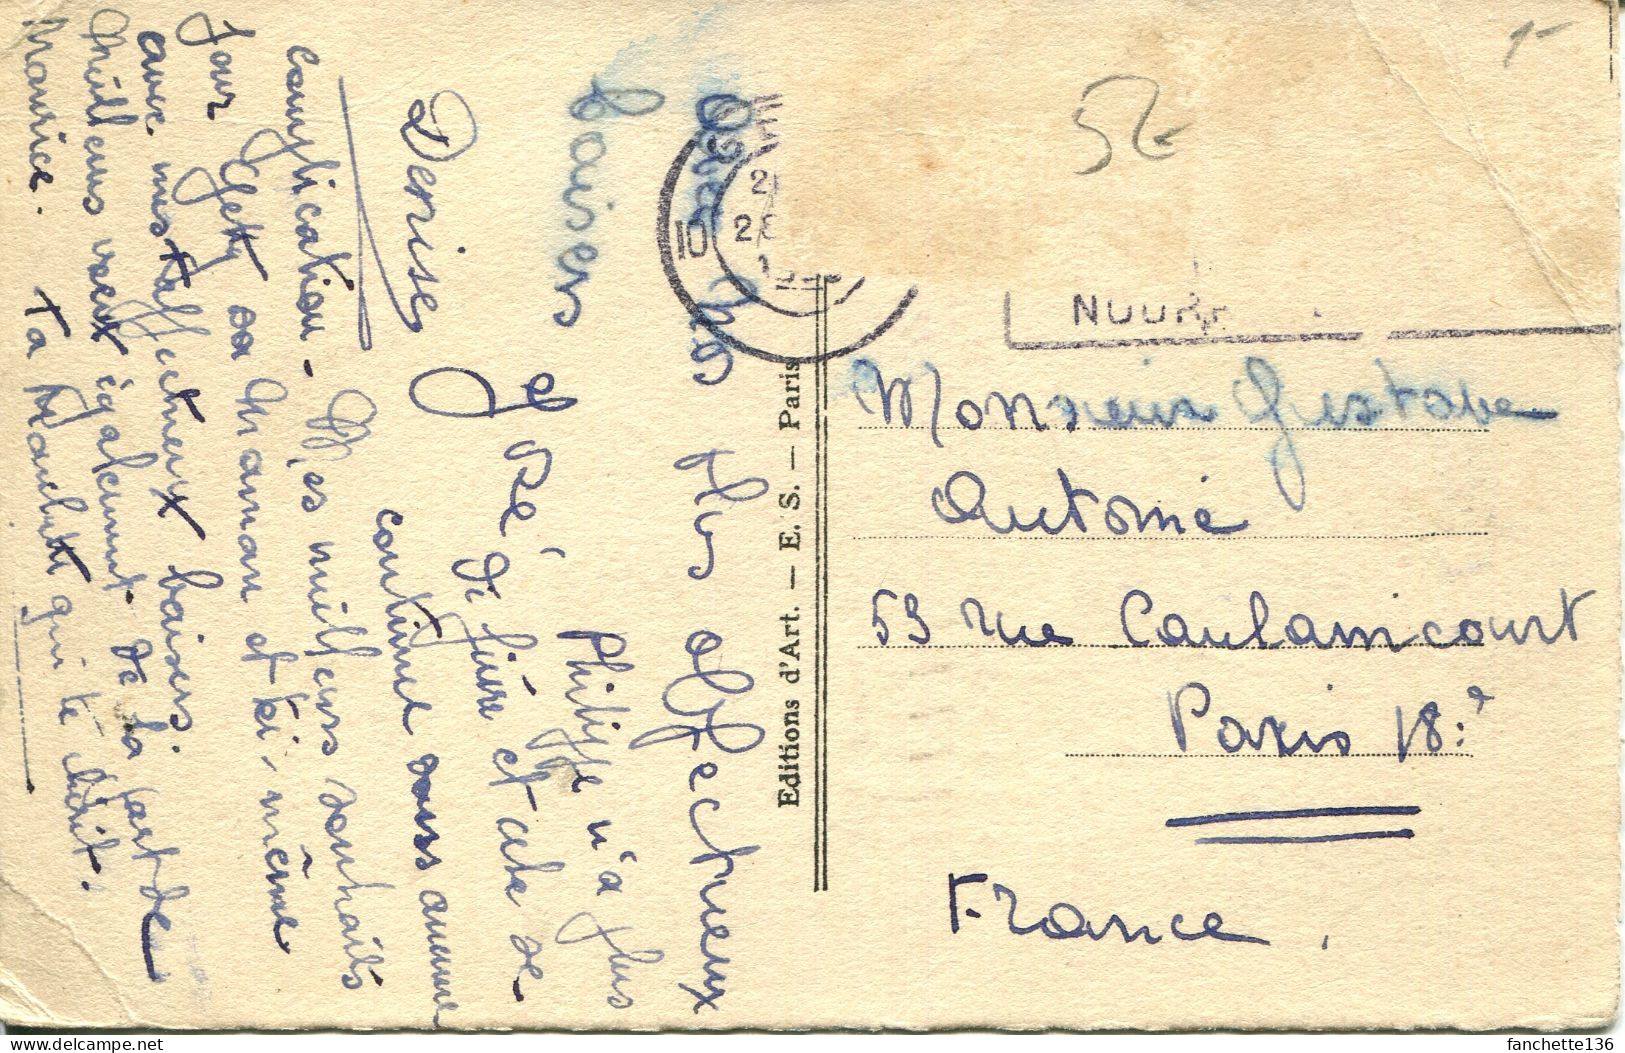 Avec mes plus affectueux
baisers
Denise
José Philippe n'a plus
de fièvre et cela se
continue sans aucune
complication - Mes meilleurs souhaits
pour Getty sa Maman et toi-même
avec mes affectueux baisers.
Meilleurs vœux également de la part de
Maurice. ta Paulette qui te chérit.
Editions d'Art. — E. S. — Paris
10
52
1-
NOUR
Monsieur Gustave
Antoine
53 rue Caulaincourt
Paris 18:e
France.
fanchette136